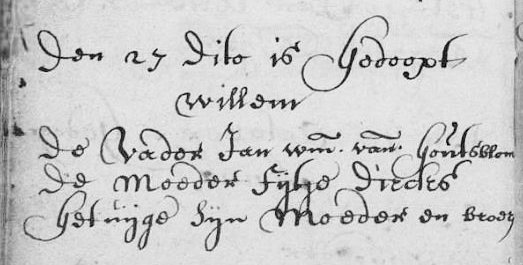 Den 27 dito is Gedoopt
Willem
de Vader Jan Wm. van. Houtsblom
de Moeder Fijtje Diecks
Getuijge Sijn Moeder en broer